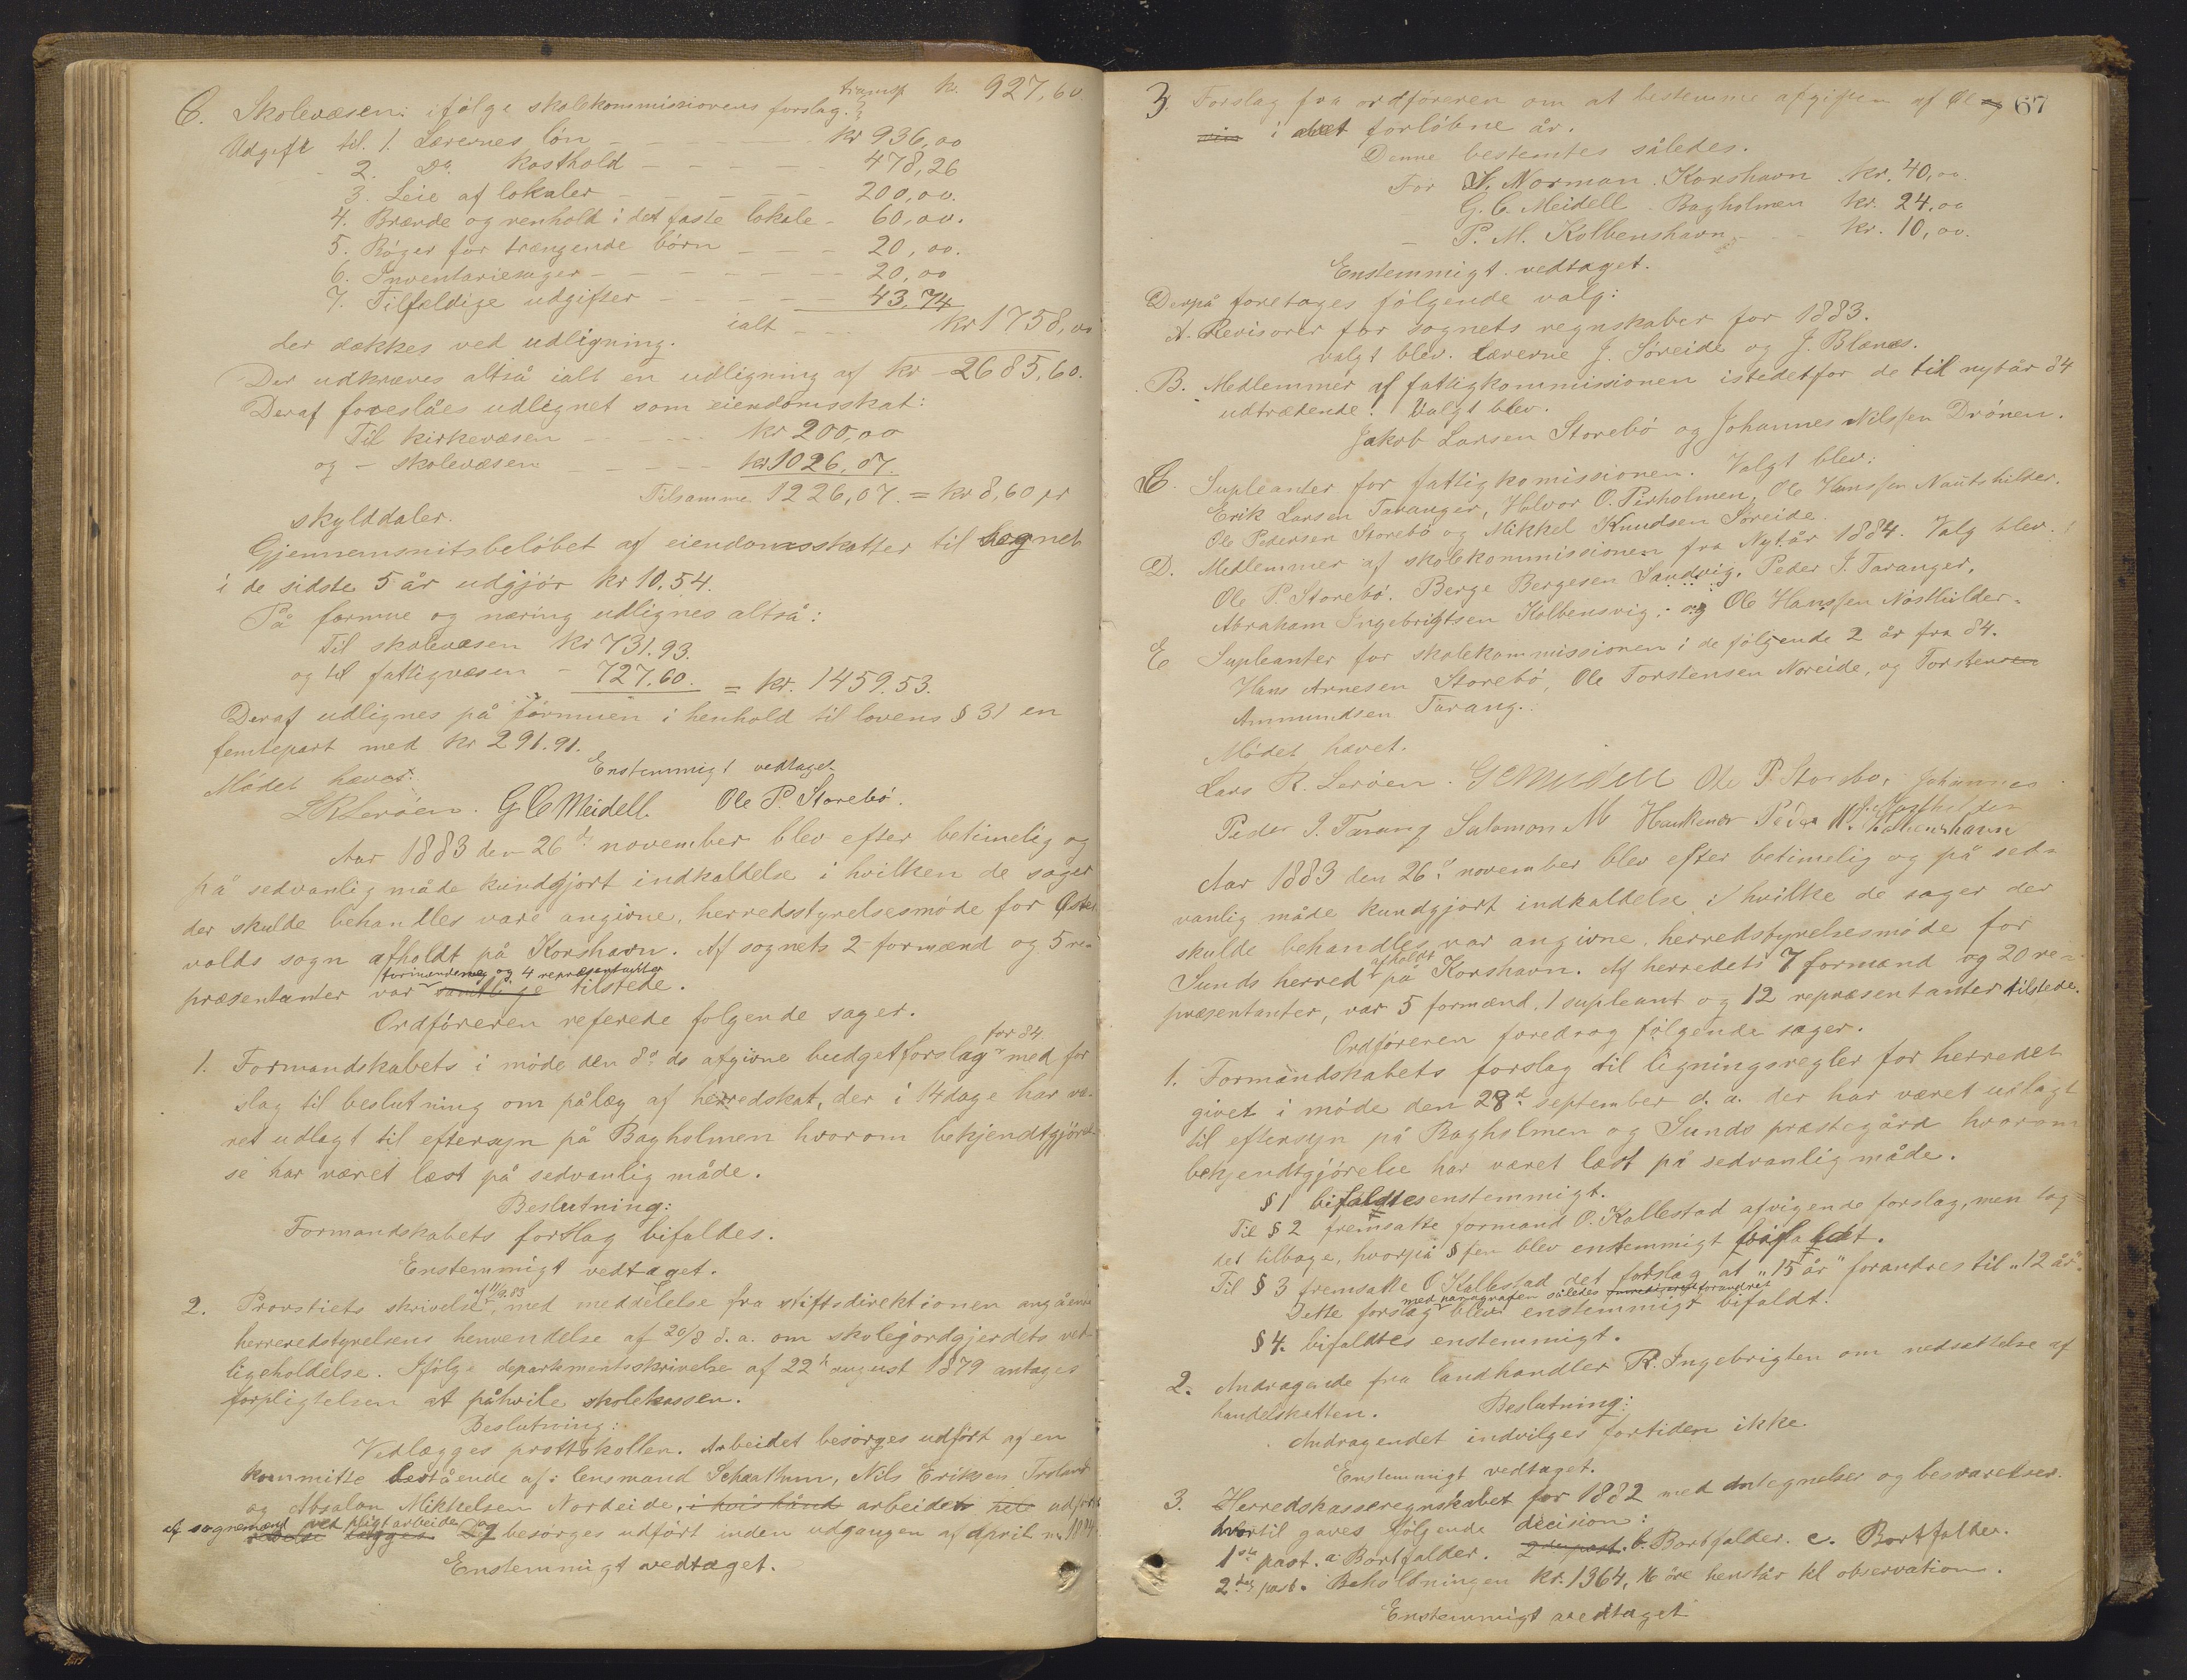 transp kr. 927,60
C. Skolevæsen: ifölge skolekommissionens forslag:
Udgift til. 1. Lærernes lön - - - - kr 936,00
- 2. Do. kosthold - - - - 478,26
3. Leie af lokaler - - - - 200,00.
4. Brænde og renhold i det faste lokale - 60,00.
5. Böger for trængende börn - - 20,00.
6. Inventariesager - - - - - 20,00
7. Tilfældige udgifter - - - - - 43,74
ialt - - - kr 1758,00
der dækkes ved udligning.
Der udkræves altså ialt en udligning af kr - 2685,60.
Deraf foreslåes udlignet som eiendomsskat:
Til kirkevæsen - - - - - kr 200,00
og - skolevæsen - - - - - kr 1026,07.
Tilsamme 1226,07. = kr 8,60 pr
skylddaler.
Gjennemsnitsbelöbet af eiendomsskatter til sognet
i de sidste 5 år udgjör kr 10,54.
På formue og næring udlignes altså:
Til skolevæsen kr 731.93.
og til fattigvæsen - 727.60. = kr. 1459.53.
Deraf udlignes på formuen i henhold til lovens § 31 en
femtepart med kr 291.91.
Enstemmigt vedtaget
Mödet hævet.
L R Leröen. G C Meidell. Ole P. Storebö.
Aar 1883 den 26de november blev efter betimelig og
på sedvanlig måde kundgjort indkaldelse i hvilken de sager
der skulde behandles vare angivne, herredsstyrelsesmöde for Øster
volds sogn afholdt på Korshavn. Af sognets 2 formænd og 5 re-
formændene og 4 repræsentanter
præsentanter var samtlige tilstede.
Ordföreren referede folgende sager.
for 84
1. Formandskabets i möde den 8de ds afgivne budgetforslag med for
slag til beslutning om pålæg af herredskat, der i 14 dage har væ-
ret udlagt til eftersyn på Bagholmen hvorom bekjendtgjörel-
se har været læst på sedvanlig måde.
Beslutning:
Formandskabets forslag bifaldes.
Enstemmigt vedtaget.
af 11/9 83
2. Provstiets skrivelse, med meddelelse fra stiftsdirektionen angåen
herreredstyrelsens henvendelse af 20/8 d. a. om skolejordgjerdets ved-
ligeholdelse. Ifölge departementsskrivelse af 22de august 1879 antages
forpligtelsen at påhvile skolekassen.
Beslutning:
Vedlægges prottokollen. Arbeidet besörges udfört af en
kommitte bestående af: lensmand Schaathun, Nils Eriksen
og Absalon Mikkelsen Nordeide, i hvis hånd arbeidet udfört
af sognemænd ved pligtarbeide og
lægges Og besörges udfört inden udgangen af april m. 1884.
Enstemmigt vedtaget.
67
3. Forslag fra ordföreren om at bestemme afgiften af öl og
vin i det forlöbne år.
Denne bestemtes således.
For S. Norman. Korshavn kr. 40,00.
G. C. Meidell Bagholmen kr. 24,00
- P. M. Kolbenshavn - - kr. 10,00.
Enstemmigt vedtaget.
Derpå foretages fölgende valg:
A. Revisorer for sognets regnskaber for 1883.
valgt blev. Lærerne J. Söreide og J. Blænes.
B. Medlemmer af fattigkommissionen istedetfor de til nytår 84
udtrædende. Valgt blev.
Jakob Larsen Storebö og Johannes Nilssen Drönen.
C. Supleanter for fattigkomissionen. Valgt blev:
Erik Larsen Taranger, Halvor O. Perholmen, Ole Hanssen Nautshilder.
Ole Pedersen Storebö og Mikkel Knudsen Söreide.
D. Medlemmer af skolekommissionen fra Nytår 1884. Valg blev.
Ole P. Storebö. Berge Bergesen Sandvig. Peder J. Taranger,
Abraham Ingebrigtsen Kolbensvig, og Ole Hanssen Nöstkilder.
E Supleanter for skolekommissionen i de fölgende 2 år fra 84.
Hans Arnesen Storebö, Ole Torstensen Noreide, og Torstensen
Ammundsen Tarang.
Mödet hævet.
Lars R. Leröen. G C Meidell Ole P. Storebö, Johannes
Peder J. Tarang Salomon M Haukenes Peder M. Kolbenshavn
Aar 1883 den 26de november blev efter betimelig og på sed-
vanlig måde kundgjort indkaldelse i hvilke de sager der
skulde behandles var angivne, herredstyrelsesmöde for
afholdt
Sunds herred på Korshavn. Af herredets 7 formænd og 20 re-
præsentanter, var 5 formænd, 1 supleant og 12 repræsentanter tilstede.
Ordföreren foredrog fölgende sager.
1. Formandskabets forslag til ligningsregler for herredet
givet i möde den 28de september d. a. der har været udlagt
til eftersyn på Bagholmen og Sunds præstegård hvorom
bekjendtgjörelse har været læst på sedvanlig måde.
§ 1 bifaldtes enstemmigt.
Til § 2 fremsatte formand O. Kallestad afvigende forslag, men tog
det tilbage, hvorpå §fen blev enstemmigt bifaldet.
Til § 3 fremsatte O Kallestad det forslag at "15 år" forandres til "12 år".
med paragrafen således forandret
Dette forslag blev enstemmigt bifaldt.
§ 4. bifaldtes enstemmigt.
2. Andragende fra landhandler R. Ingebrigten om nedsættelse af
handelskatten. Beslutning:
Andragendet indvilges fortiden ikke.
Enstemmigt vedtaget.
3. Herredskasseregnskabet for 1882 med antegnelser og besvarelser.
hvortil gaves fölgende decision:
1ste post. a Bortfalder. 2den post. b. Bortfalder. c. Bortfalder.
2den post. Beholdningen kr. 1364, 16 öre henstår til observation.
Enstemmigt vedtaget